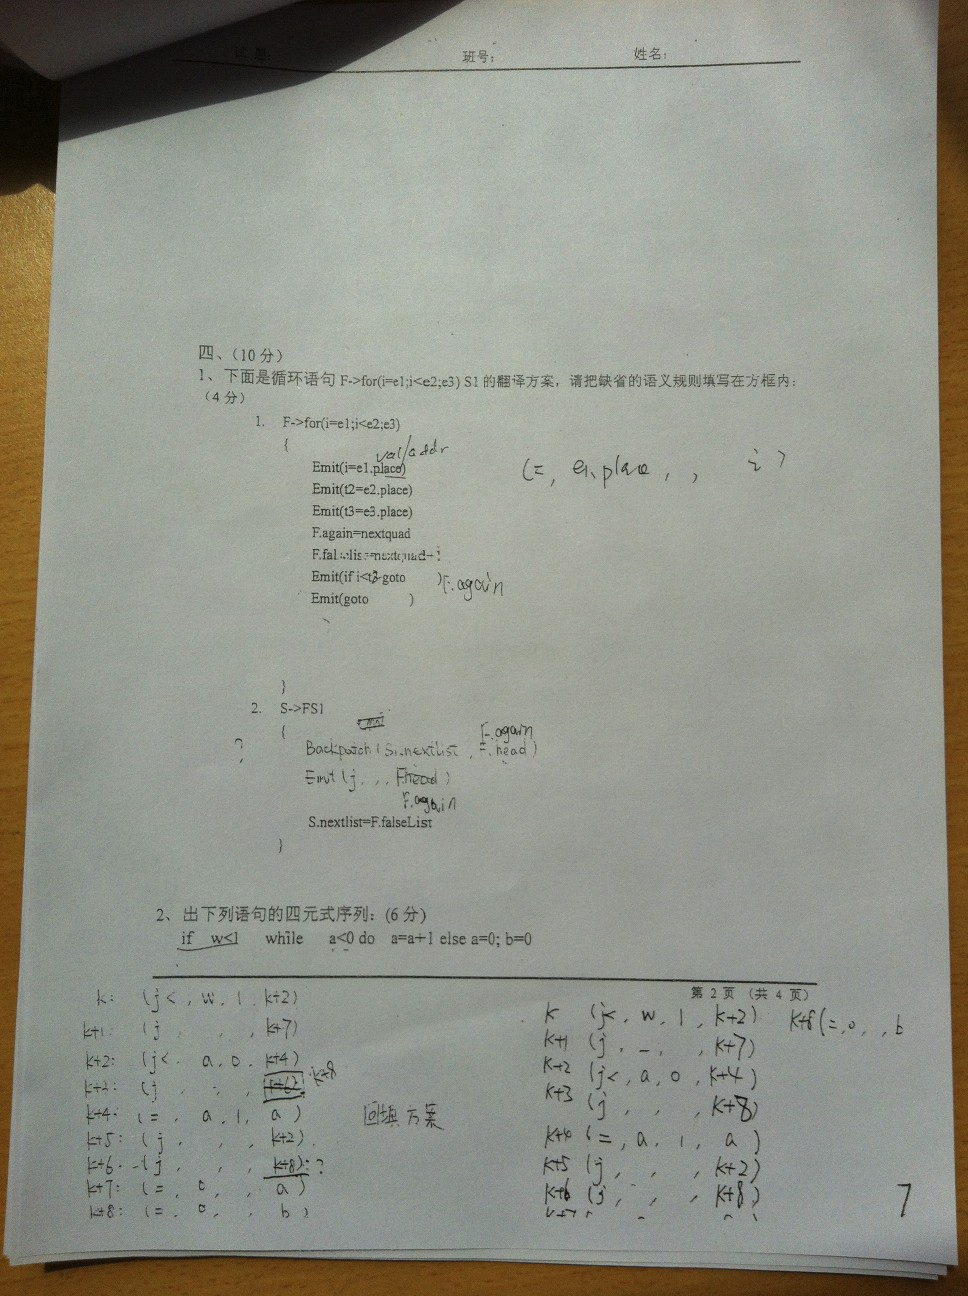 班号： 姓名：
四、（10 分）
1、下面是循环语句 F->for(i=e1;i<e2;e3) S1 的翻译方案，请把缺省的语义规则填写在方框内：
（4 分）
1. F->for(i=e1;i<e2;e3)
{
val/addr
Emit(i=e1.place) (=, e1.place , , i )
Emit(t2=e2.place)
Emit(t3=e3.place)
F.again=nextquad
Emit(if i<t2 goto ) F.again
Emit(goto )
}
2. S->FS1
{ F.again
? Backpatch(S1.nextlist , F.head)
Emit(j , , , F.head)
F.again
S.nextlist=F.falseList
}
2、出下列语句的四元式序列：(6 分)
if w<1 while a<0 do a=a+1 else a=0; b=0
第 2 页 （共 4 页）
k: (j< , w , 1 , k+2)
k+1: (j , , , k+7)
k+2: (j< , a , 0 , k+4)
k+3: (j , , , k+8
k+4: (= , a , 1 , a )
k+5: (j , , , k+2)
k+6: (j , , , k+8) ?
k+7: (= , 0 , , a )
k+8: (= , 0 , , b )
回填方案
k (j< , w , 1 , k+2) k+8 (= , 0 , , b
k+1 (j , _ , , k+7)
k+2 (j< , a , 0 , k+4)
k+3 (j , , , k+8)
k+4 (= , a , 1 , a )
k+5 (j , , , k+2)
k+6 (j , , , k+8)
7